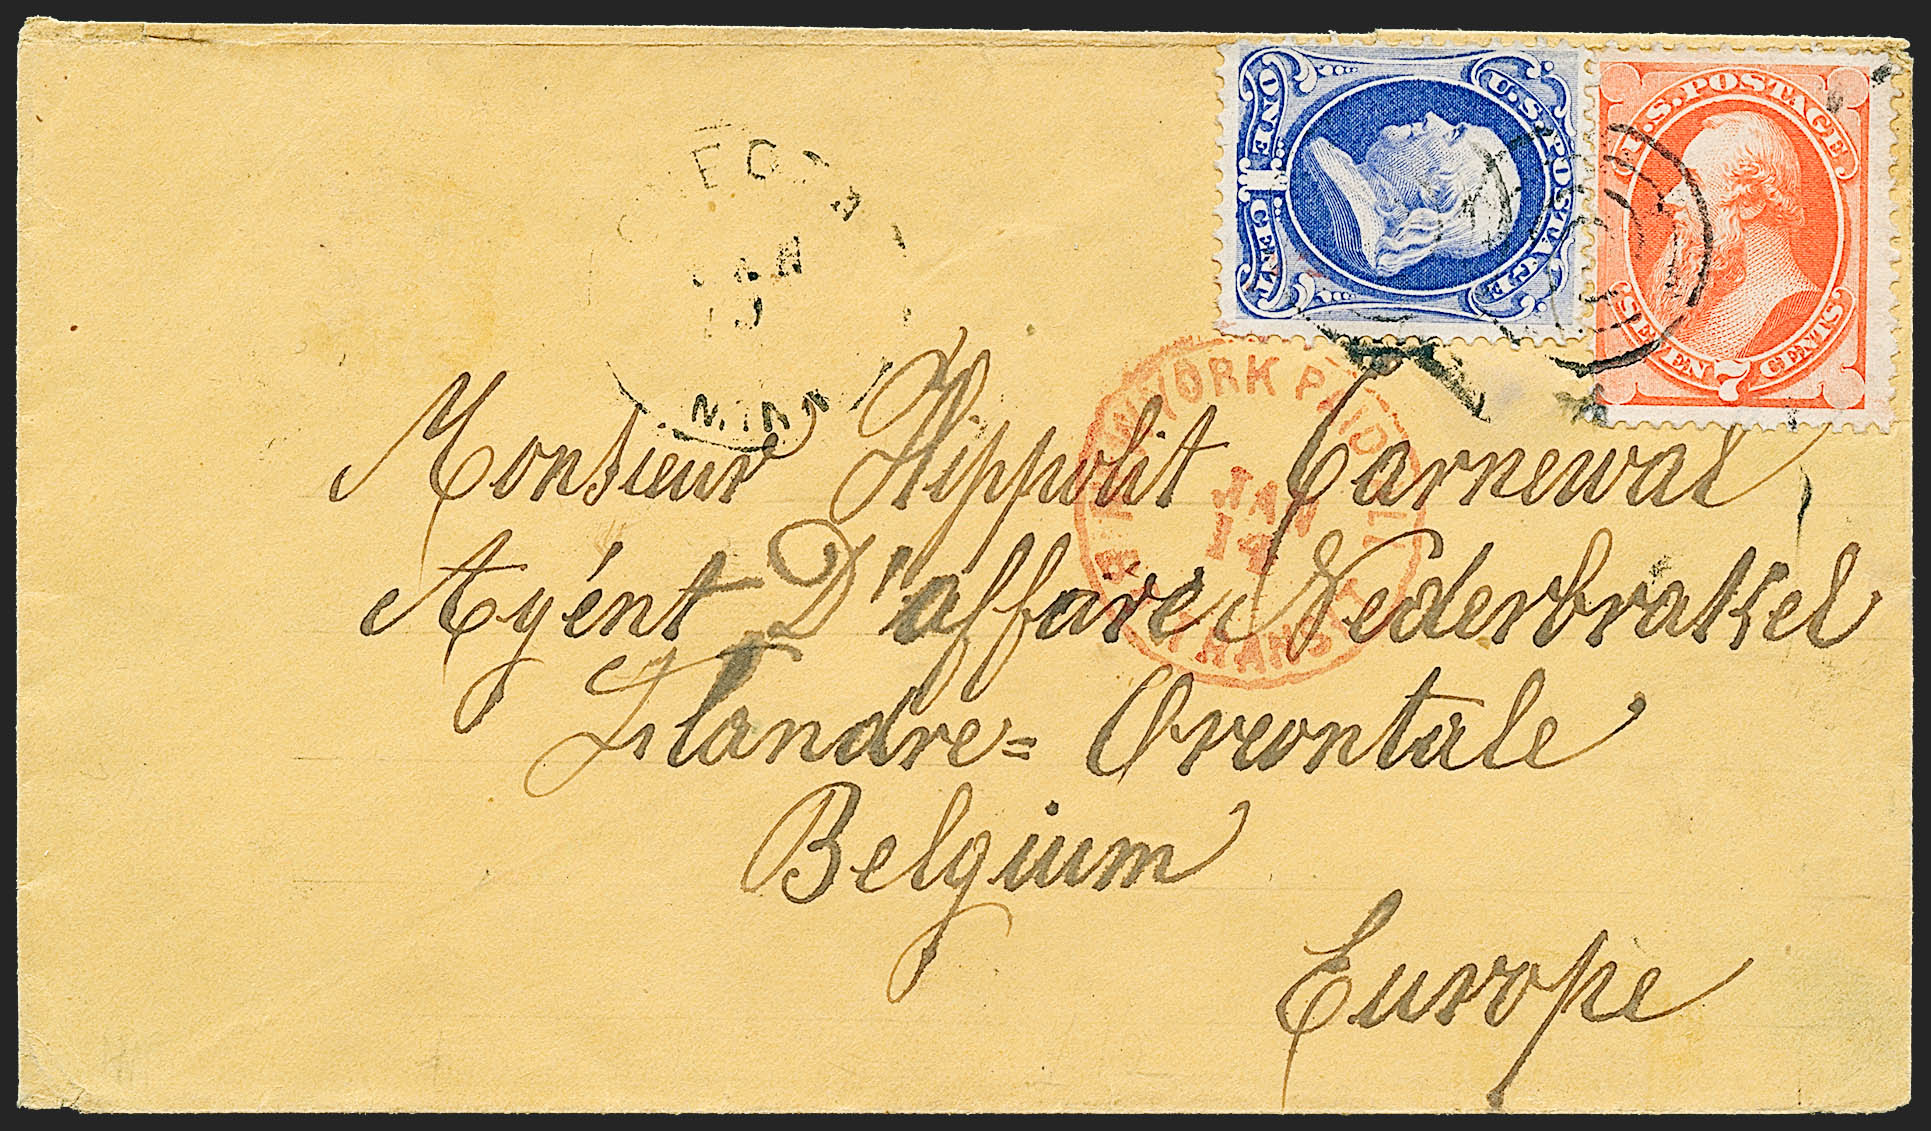 U.S. POSTAGE
ONE 1 CENT
U.S. POSTAGE
SEVEN 7 CENTS.
JAN
MINN
NEW YORK PAID ALL
JAN
14
BR. TRANSIT
Monsieur Hippolit Carnewal
Agént D'affare Nederbrakel
Flandre= Oreontale
Belgium
Europe